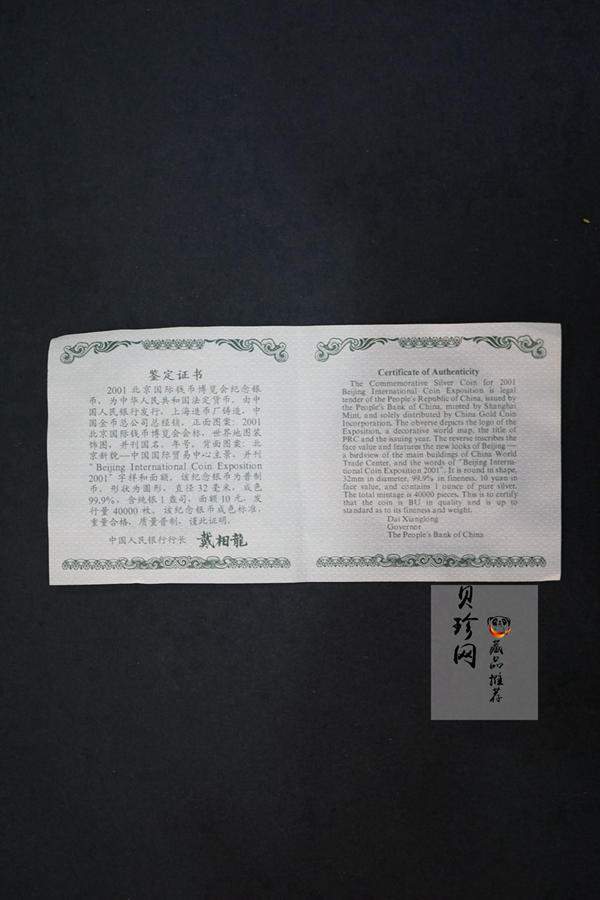 鉴定证书
2001 北京国际钱币博览会纪念银
币，为中华人民共和国法定货币，由中
国人民银行发行，上海造币厂铸造，中
国金币总公司总经销。正面图案：2001
北京国际钱币博览会会标，世界地图装
饰图，并刊国名、年号，背面图案：北
京新貌—中国国际贸易中心主景，并刊
"Beijing International Coin Exposition
2001" 字样和面额。该纪念银币为普制
币，形状为圆形，直径 32 毫米，成色
99.9%，含纯银 1 盎司，面额 10 元，发
行量 40000 枚。该纪念银币成色标准，
重量合格，质量普制，谨此证明。
中国人民银行行长 戴相龍
Certificate of Authenticity
The Commemorative Silver Coin for 2001
Beijing International Coin Exposition is legal
tender of the People's Republic of China, issued by
the People's Bank of China, minted by Shanghai
Mint, and solely distributed by China Gold Coin
Incorporation. The obverse depicts the logo of the
Exposition, a decorative world map, the title of
PRC and the issuing year. The reverse inscribes the
face value and features the new looks of Beijing—
a birdview of the main buildings of China World
Trade Center, and the words of "Beijing Interna-
tional Coin Exposition 2001". It is round in shape,
32mm in diameter, 99.9% in fineness, 10 yuan in
face value, and contains 1 ounce of pure silver.
The total mintage is 40000 pieces. This is to certify
that the coin is BU in quality and is up to
standard as to its fineness and weight.
Dai Xianglong
Governor
The People's Bank of China
贝珍网
藏品推荐